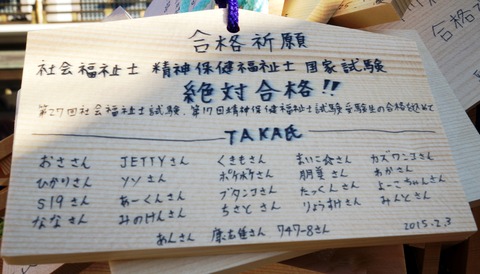 合格祈願
社会福祉士 精神保健福祉士 国家試験
絶対合格!!
第27回社会福祉士試験、第17回精神保健福祉士試験受験生の合格を込めて
TAKA氏
おささん JETTYさん くきもさん まいこ☆さん カズワンコさん
ひかりさん ソンさん ポケポケさん 朋華さん あかさん
S19さん あーくんさん ブタンコさん たっくんさん よーこちゃんさん
ななさん みのけんさん ちさとさん りょうすけさん みんとさん
あんさん 747-8さん
2015.2.3